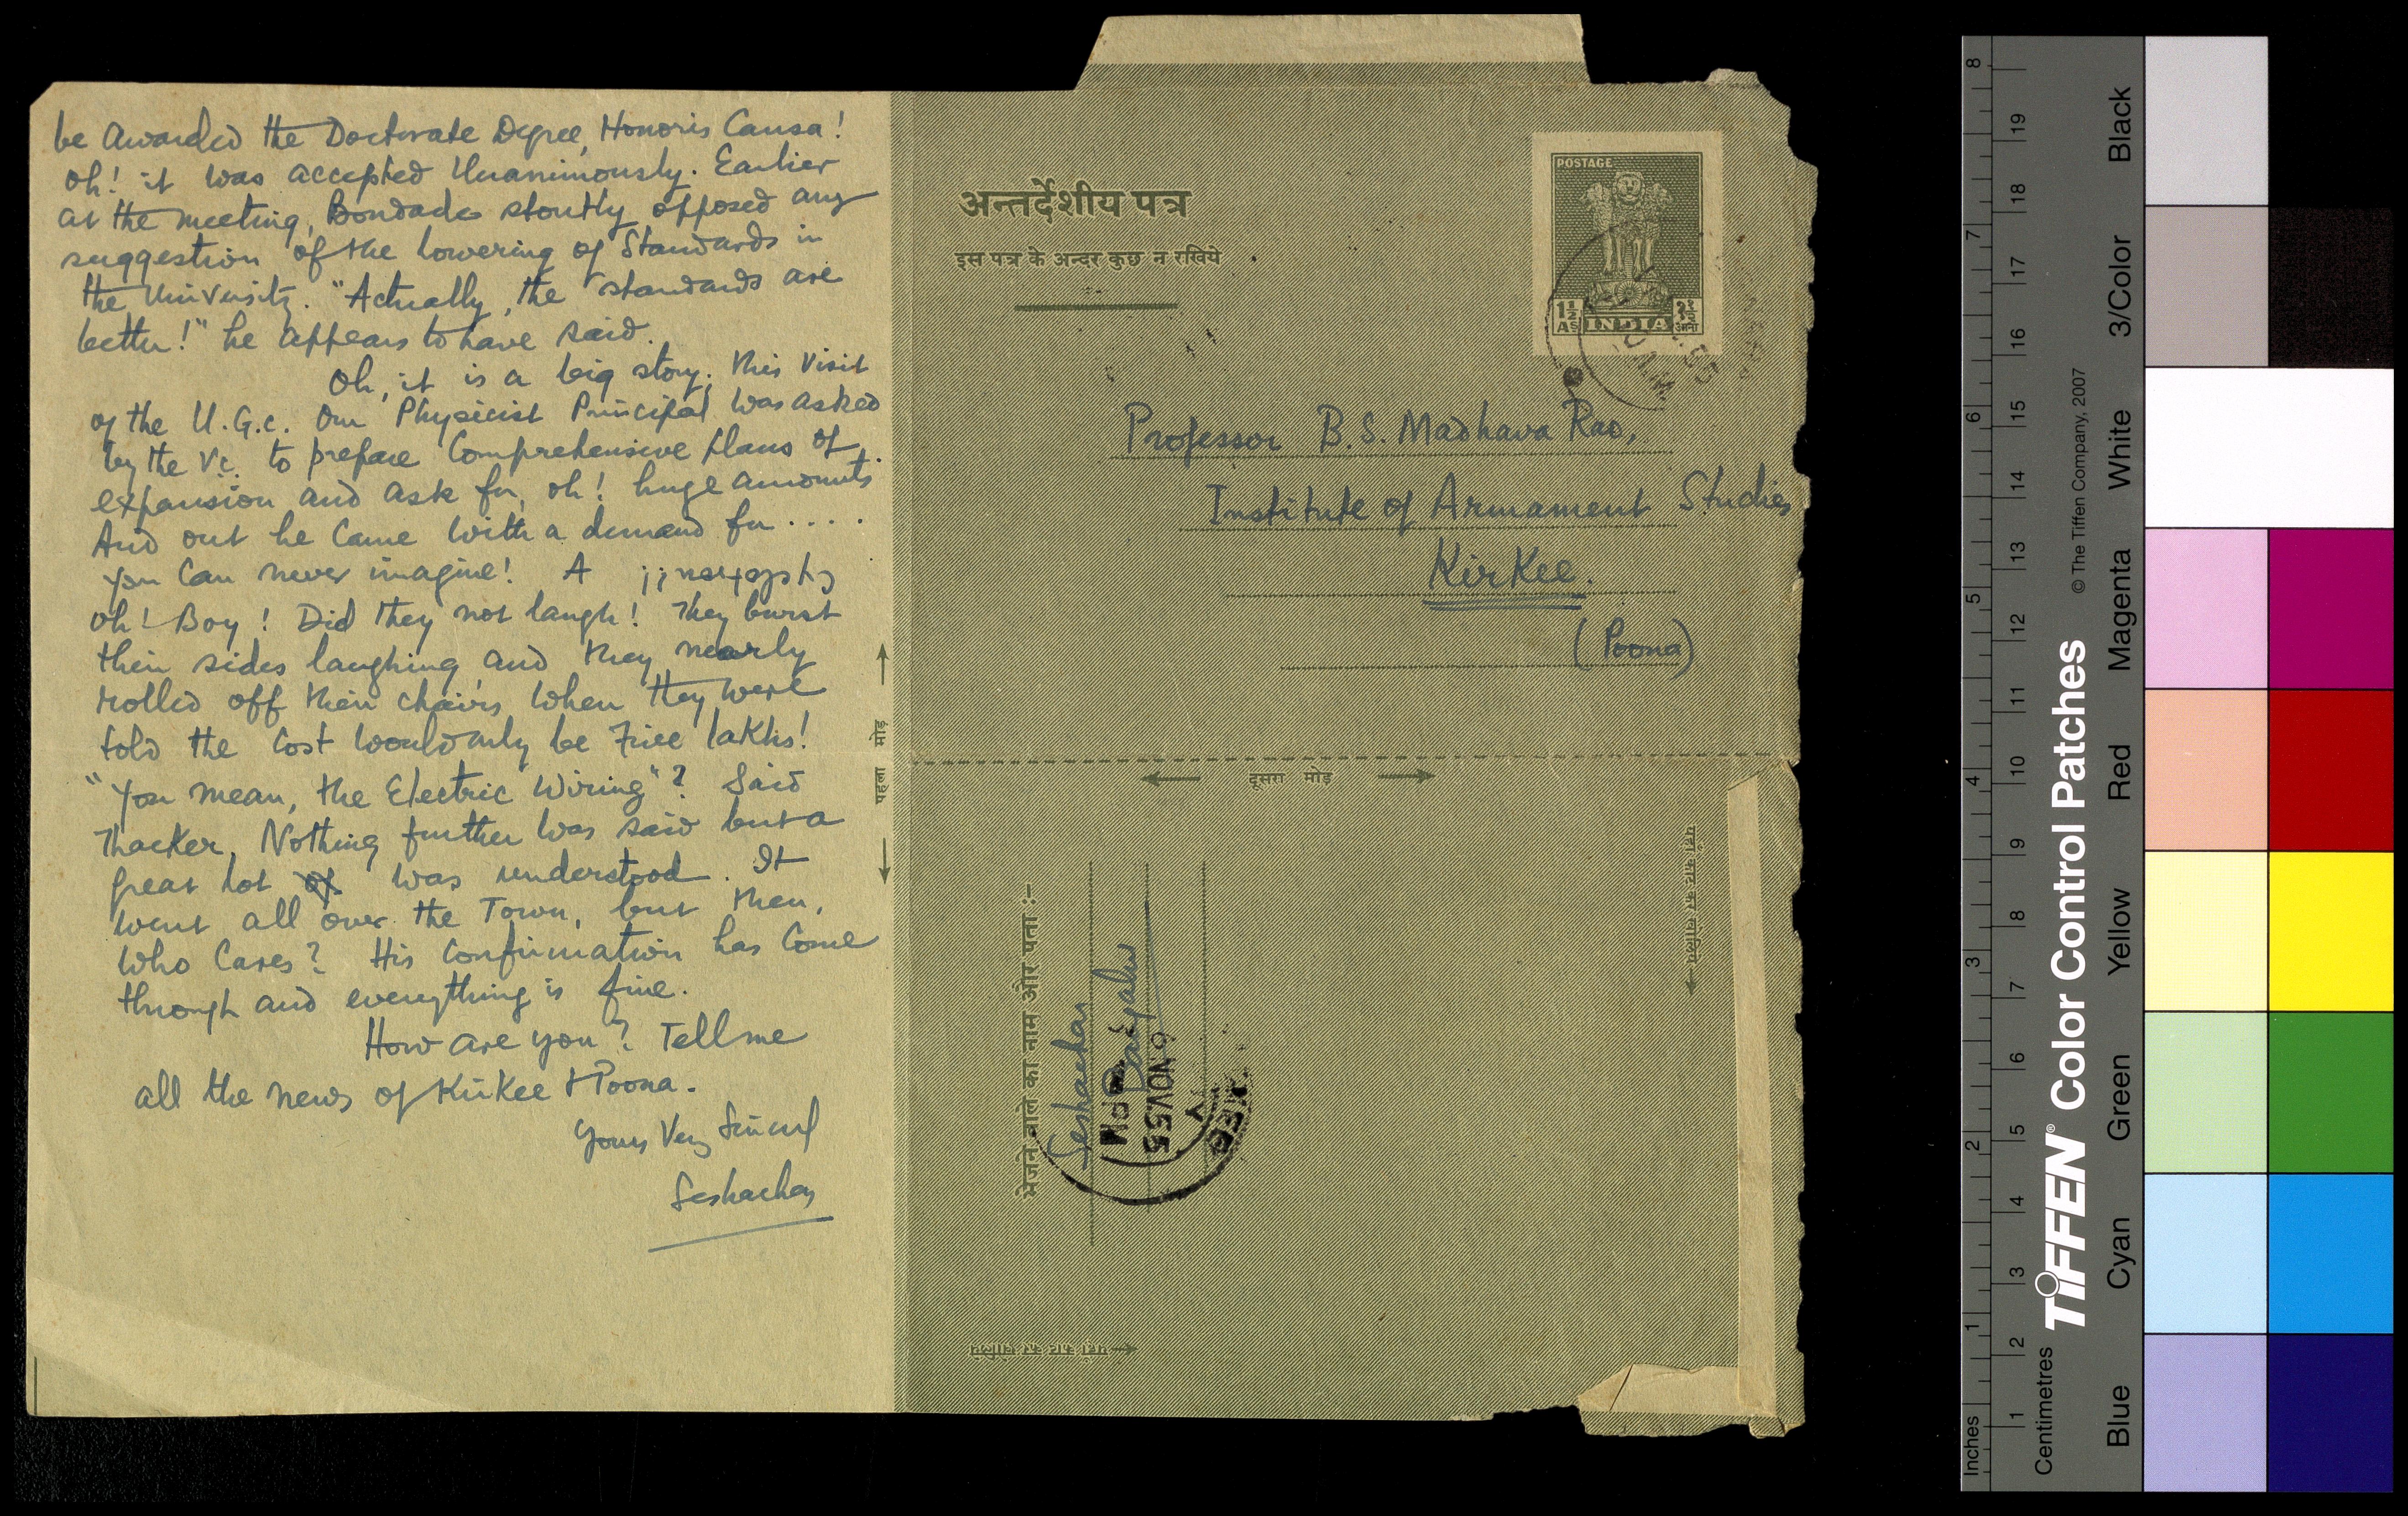 be awarded the Doctorate Degree, Honoris Causa!
Oh! it was accepted Unanimously. Earlier
at the meeting, Bondade stoutly opposed any
suggestion of the lowering of Standards in
the University. "Actually, the standards are
better!" he appears to have said.
Oh, it is a big story; this visit
of the U.G.C. Our Physicist Principal was asked
by the V.C. to prepare Comprehensive plans of
expansion and ask for, oh! huge amounts.
And out he came with a demand for ....
you can never imagine! A Cyclotron!!
Oh! Boy! Did they not laugh! They burst
their sides laughing and they nearly
rolled off their chairs when they were
told the cost would only be Five lakhs!
"You mean, the Electric Wiring"? Said
Thacker. Nothing further was said but a
great lot of was understood. It
went all over the Town, but then,
who cares? His confirmation has come
through and everything is fine.
How are you? Tell me
all the news of Kirkee & Poona.
Yours Very Sincerely
Seshachar
पहला मोड़
अन्तर्देशीय पत्र
इस पत्र के अन्दर कुछ न रखिये
POSTAGE
1½ As INDIA १½ आना
55
Professor B.S. Madhava Rao,
Institute of Armament Studies
Kirkee.
(Poona)
दूसरा मोड़
भेजने वाले का नाम और पता :-
Seshachar
Bangalore
PM
6 NOV 55
यहां काट कर खोलिये
यहां काट कर खोलिये
Inches 1 2 3 4 5 6 7 8
Centimetres 1 2 3 4 5 6 7 8 9 10 11 12 13 14 15 16 17 18 19
TIFFEN® Color Control Patches © The Tiffen Company, 2007
Blue Cyan Green Yellow Red Magenta White 3/Color Black